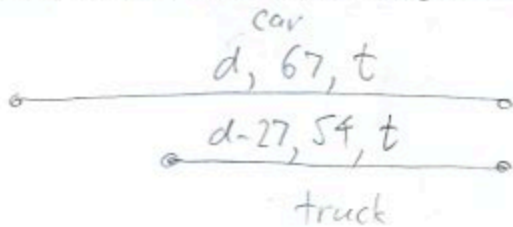 car
d, 67, t
d-27, 54, t
truck